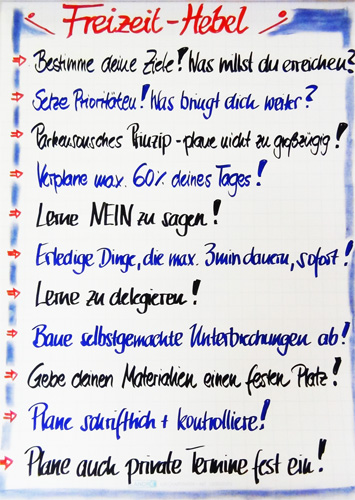 Freizeit-Hebel
Bestimme deine Ziele! Was willst du erreichen?
Setze Prioritäten! Was bringt dich weiter?
Parkensonsches Prinzip - plane nicht zu großzügig!
Verplane max. 60% deines Tages!
Lerne NEIN zu sagen!
Erledige Dinge, die max. 3min dauern, sofort!
Lerne zu delegieren!
Baue selbstgemachte Unterbrechungen ab!
Gebe deinen Materialien einen festen Platz!
Plane schriftlich + kontrolliere!
Plane auch private Termine fest ein!